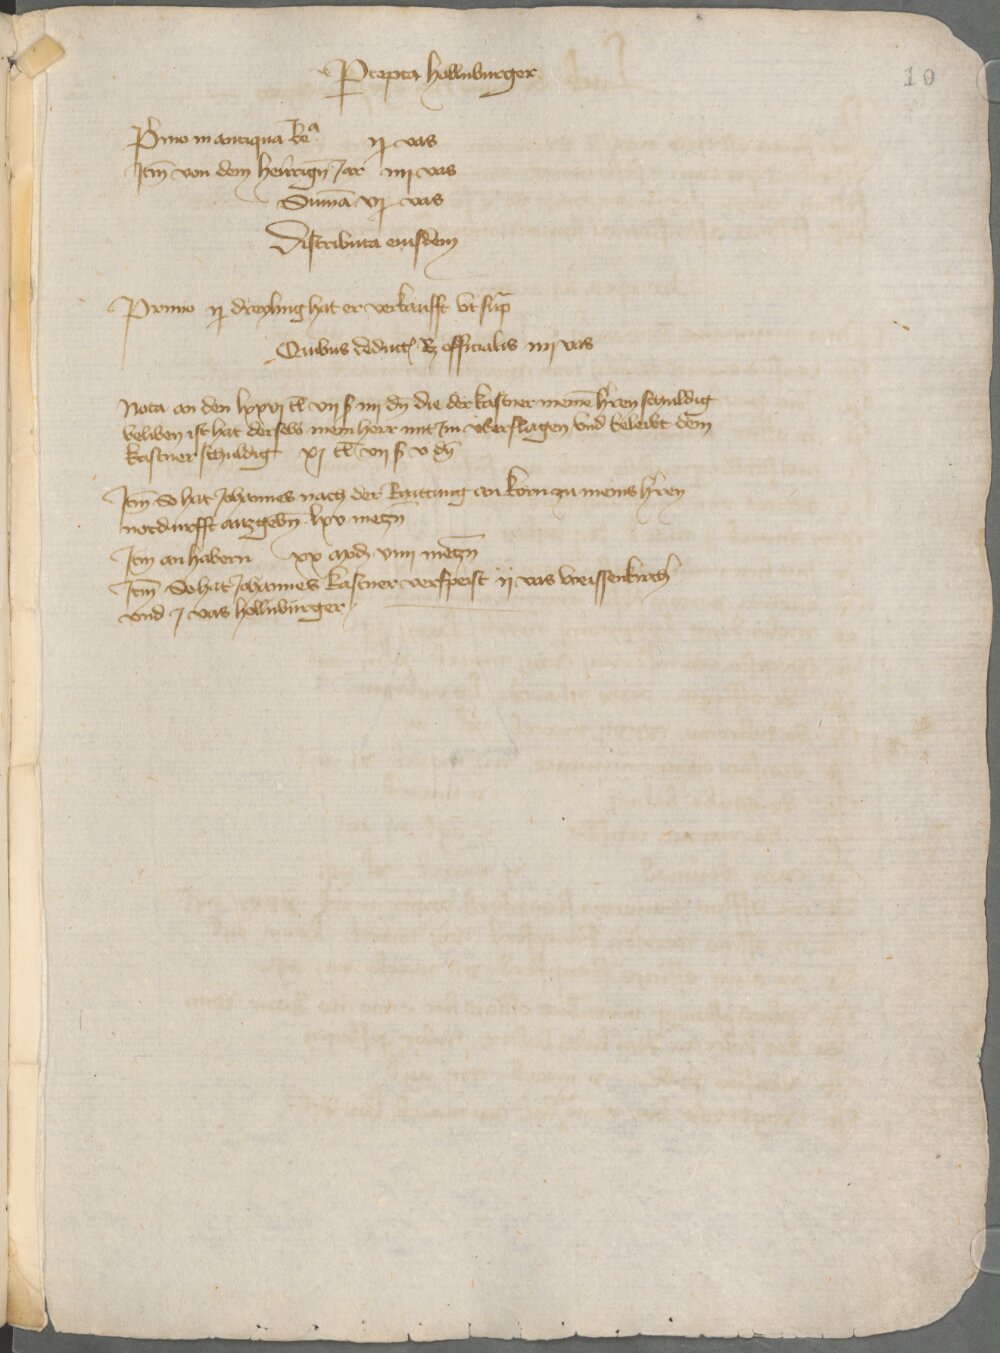 10
Pcepta hollnburger
Primo in antiqua Rea ij vas
Itm von dem heurign Jar iiij vas
Suma vj vas
Distributa eiusdem
Primo ij dreyling hat er verkaufft vt sup
Quibus deduct officialis iiij vas
Nota an den lxxvj tl vij ß iiij dn die der kastner meine hren schuldig
beliben ist hat derselb mein herr mit Im vberslagen vnd beleibt dem
kastner schuldig xj tl vij ß v dn
Itm so hat Johannes nach der Raittung an korn zu meins hren
notdurfft auzgebn lxv meczn
Itm an habern xx mod viiij meczn
Itm So hat Johannes kastner verspeist ij vas weissenkirch
vnd j vas hollnbürger